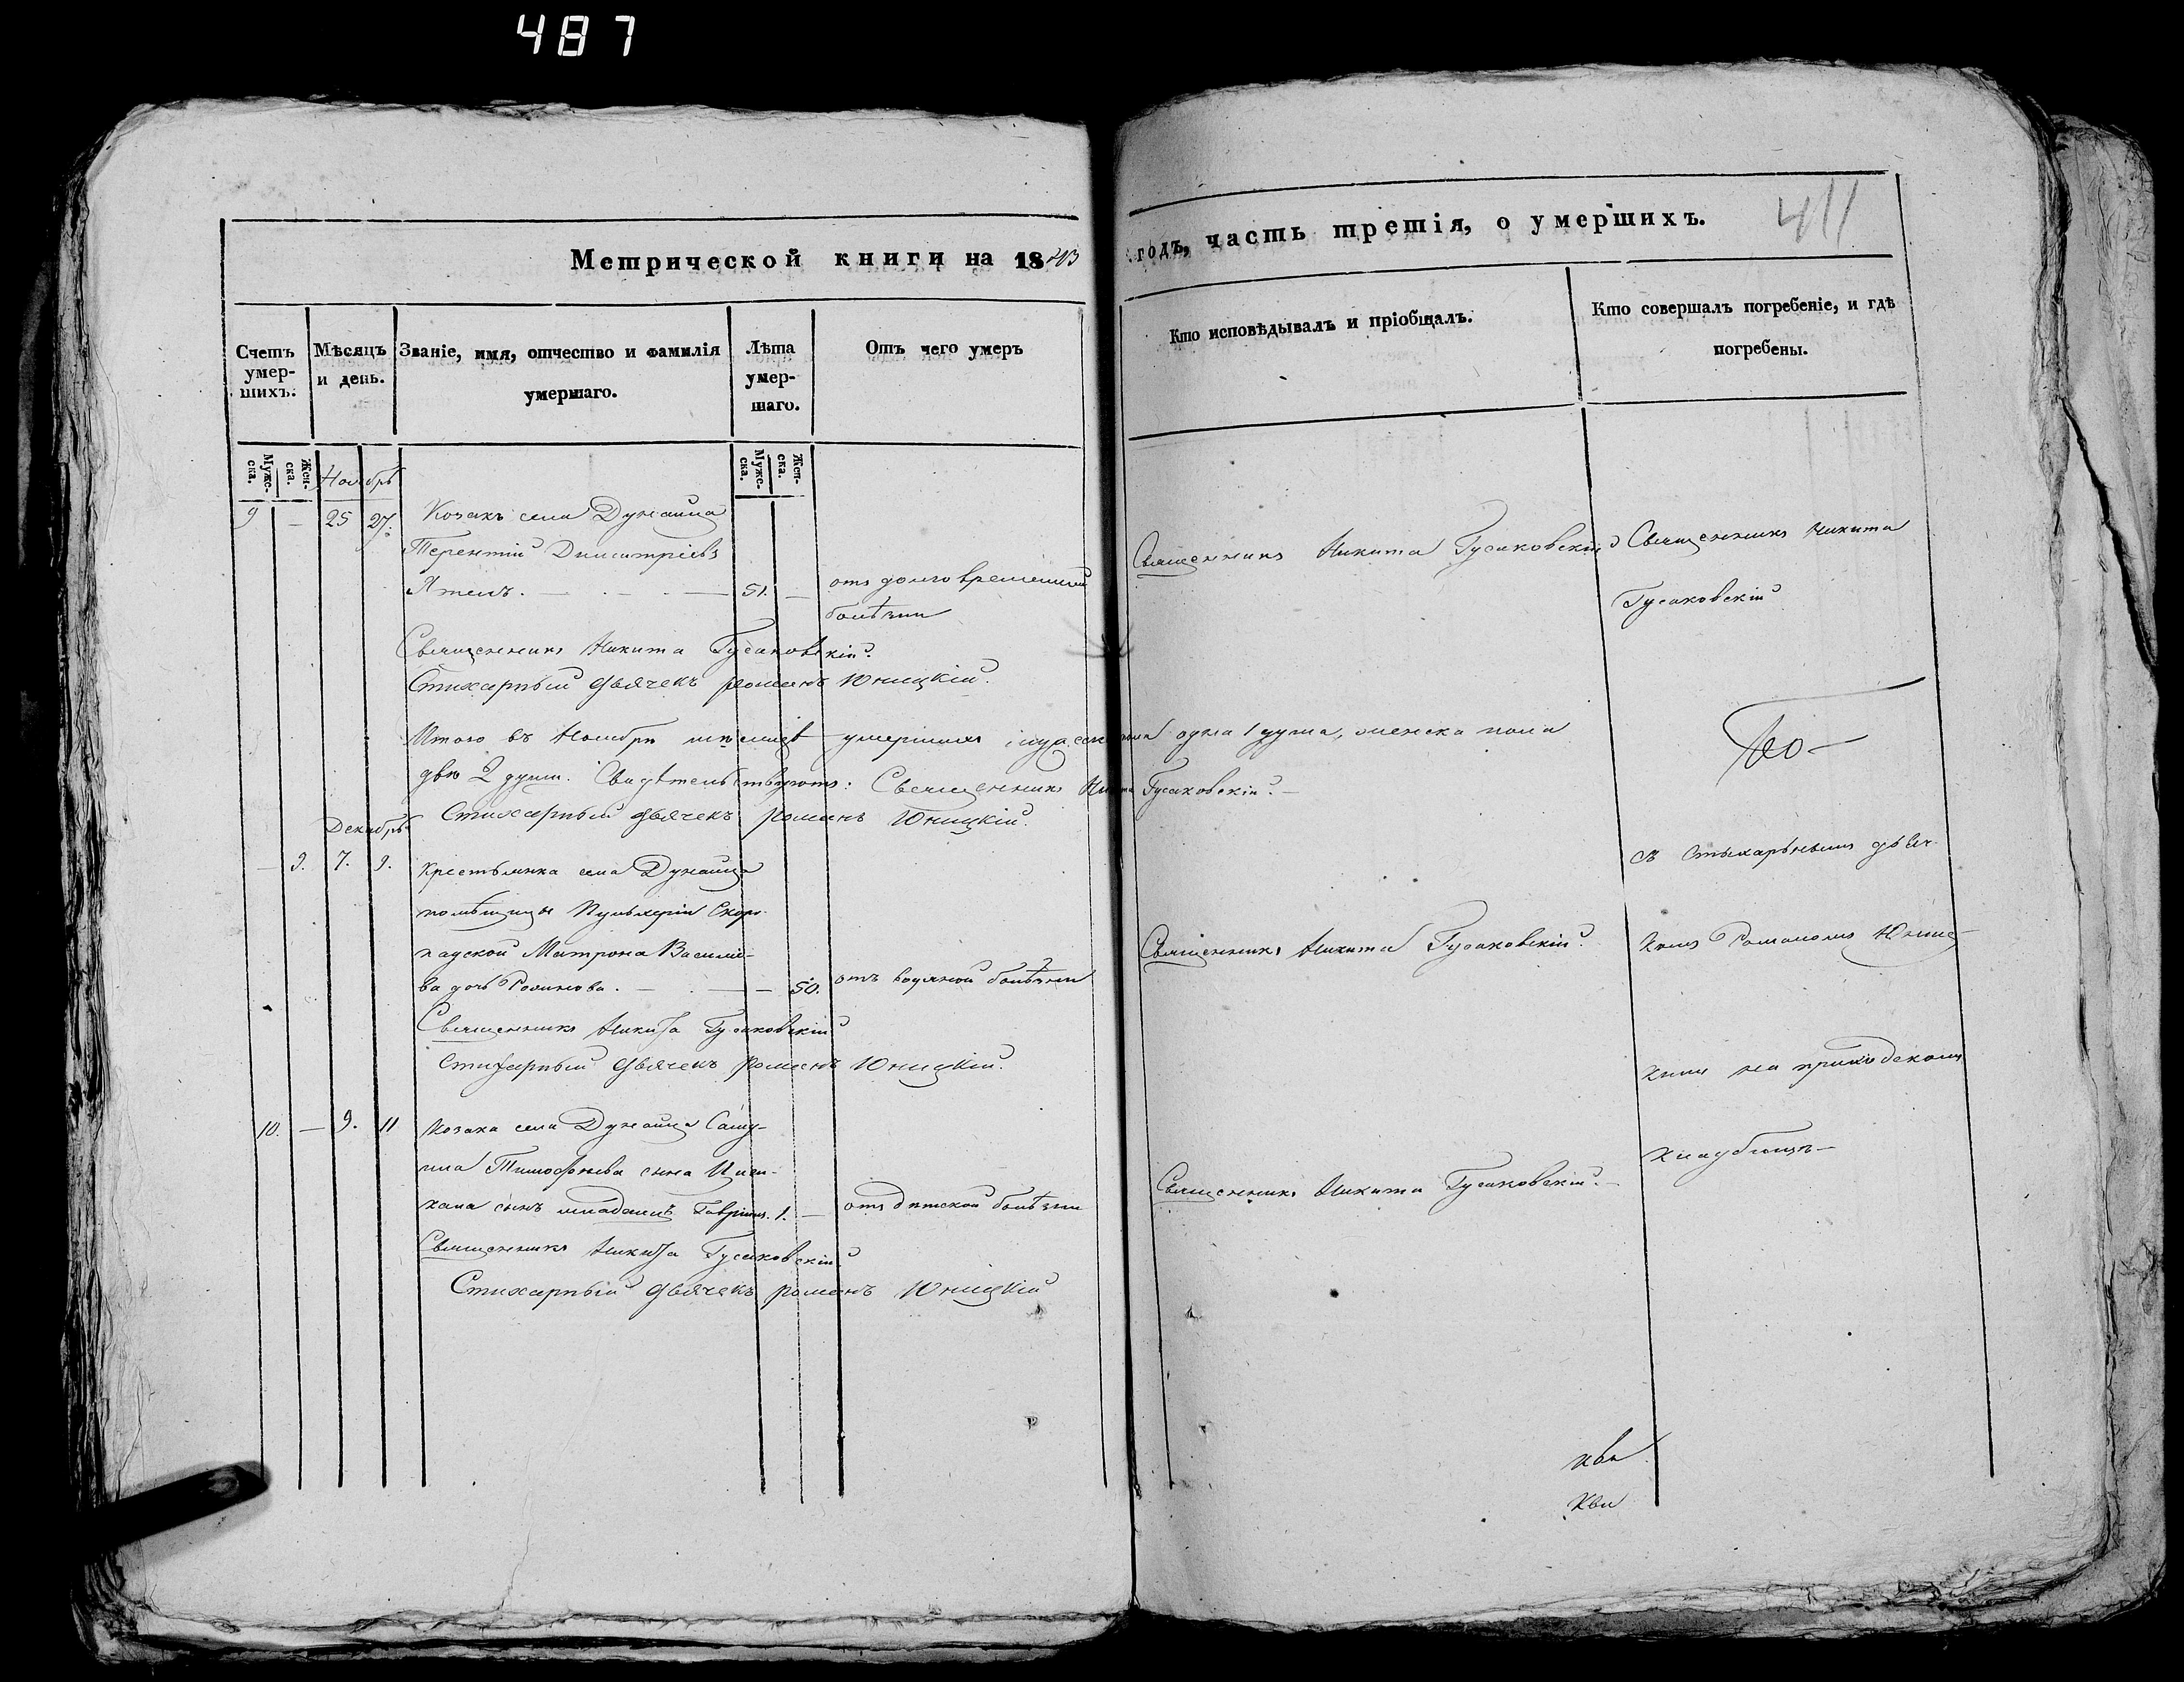 487
Метрической книги на 1843
годъ, часть третія, о умершихъ.
411
Счетъ умер-шихъ.
Мѣсяцъ и день.
Званіе, имя, отчество и фамилія умершаго.
Лѣта умер-шаго.
Отъ чего умеръ
Кто исповѣдывалъ и пріобщалъ.
Кто совершалъ погребеніе, и гдѣ погребены.
Мужс-ска.
Жен-ска.
Ноябрь
Мужс-ска.
Жен-ска.
9 — 25 27. Козакъ села Дунайца
Терентій Димитріевъ
Ятель. — 51. — отъ долговременной
болѣзни
Священникъ Никита Гусаковскій
Священникъ Никита
Гусаковскій
Священникъ Никита Гусаковскій.
Стихарный дьячекъ романъ Юницкій.
Итого въ Ноябрѣ мѣсяцѣ умершихъ мужеска пола одна 1 душа, женска пола
двѣ 2 души. Свидѣтельствуютъ: Священникъ Никита Гусаковскій. —
Стихарный дьячекъ романъ Юницкій.
Декабрь
— 9. 7. 9. Крестьянка села Дунайца
помѣщицы Пульхеріи Скоро-
падской Матрона Василіе-
ва дочь — — 50. отъ водяной болѣзни
Священникъ Никита Гусаковскій.
съ Стыхарнымъ дьяч-
комъ Романомъ Юниц-
кимъ на приходскомъ
кладбищѣ —
Священникъ Никита Гусаковскій
Стихарный дьячекъ романъ Юницкій.
10. — 9. 11 Козака села Дунайца Саму-
ила Тимофѣева сына
сынъ младенецъ Гавріилъ. 1. — отъ дѣтской болѣзни
Священникъ Никита Гусаковскій. —
Священникъ Никита Гусаковскій
Стихарный дьячекъ романъ Юницкій